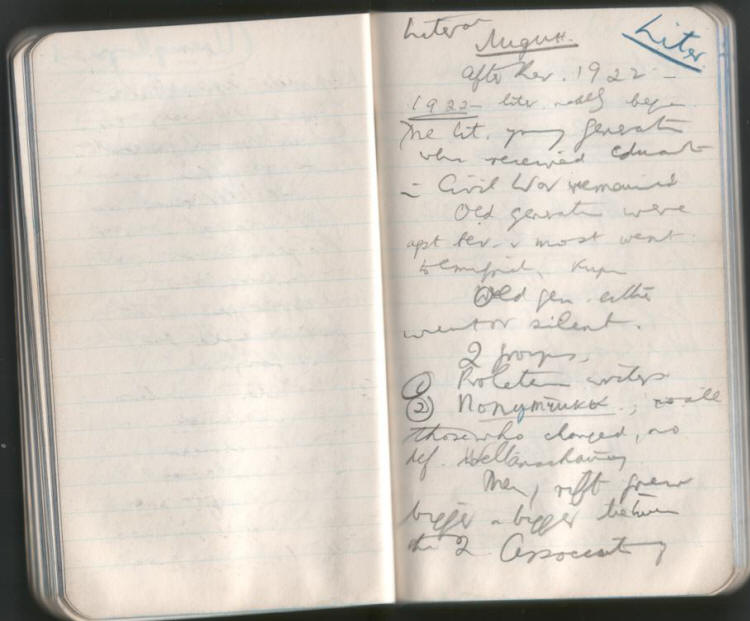 Litera Liter.
August.
after Rev. 1922 –
1922 – liter. really began
The lit. young generati
who received educat
= Civil War remained
Old generati were
agst Rev. & most went
to emigrat, Kuprin
Old gen. either
went or silent.
2 groups,
① Proletari writers
② Попутчики.,
those who changed, no
def. Weltanschauung
Then, rift grew
bigger & bigger between
the 2 Associat